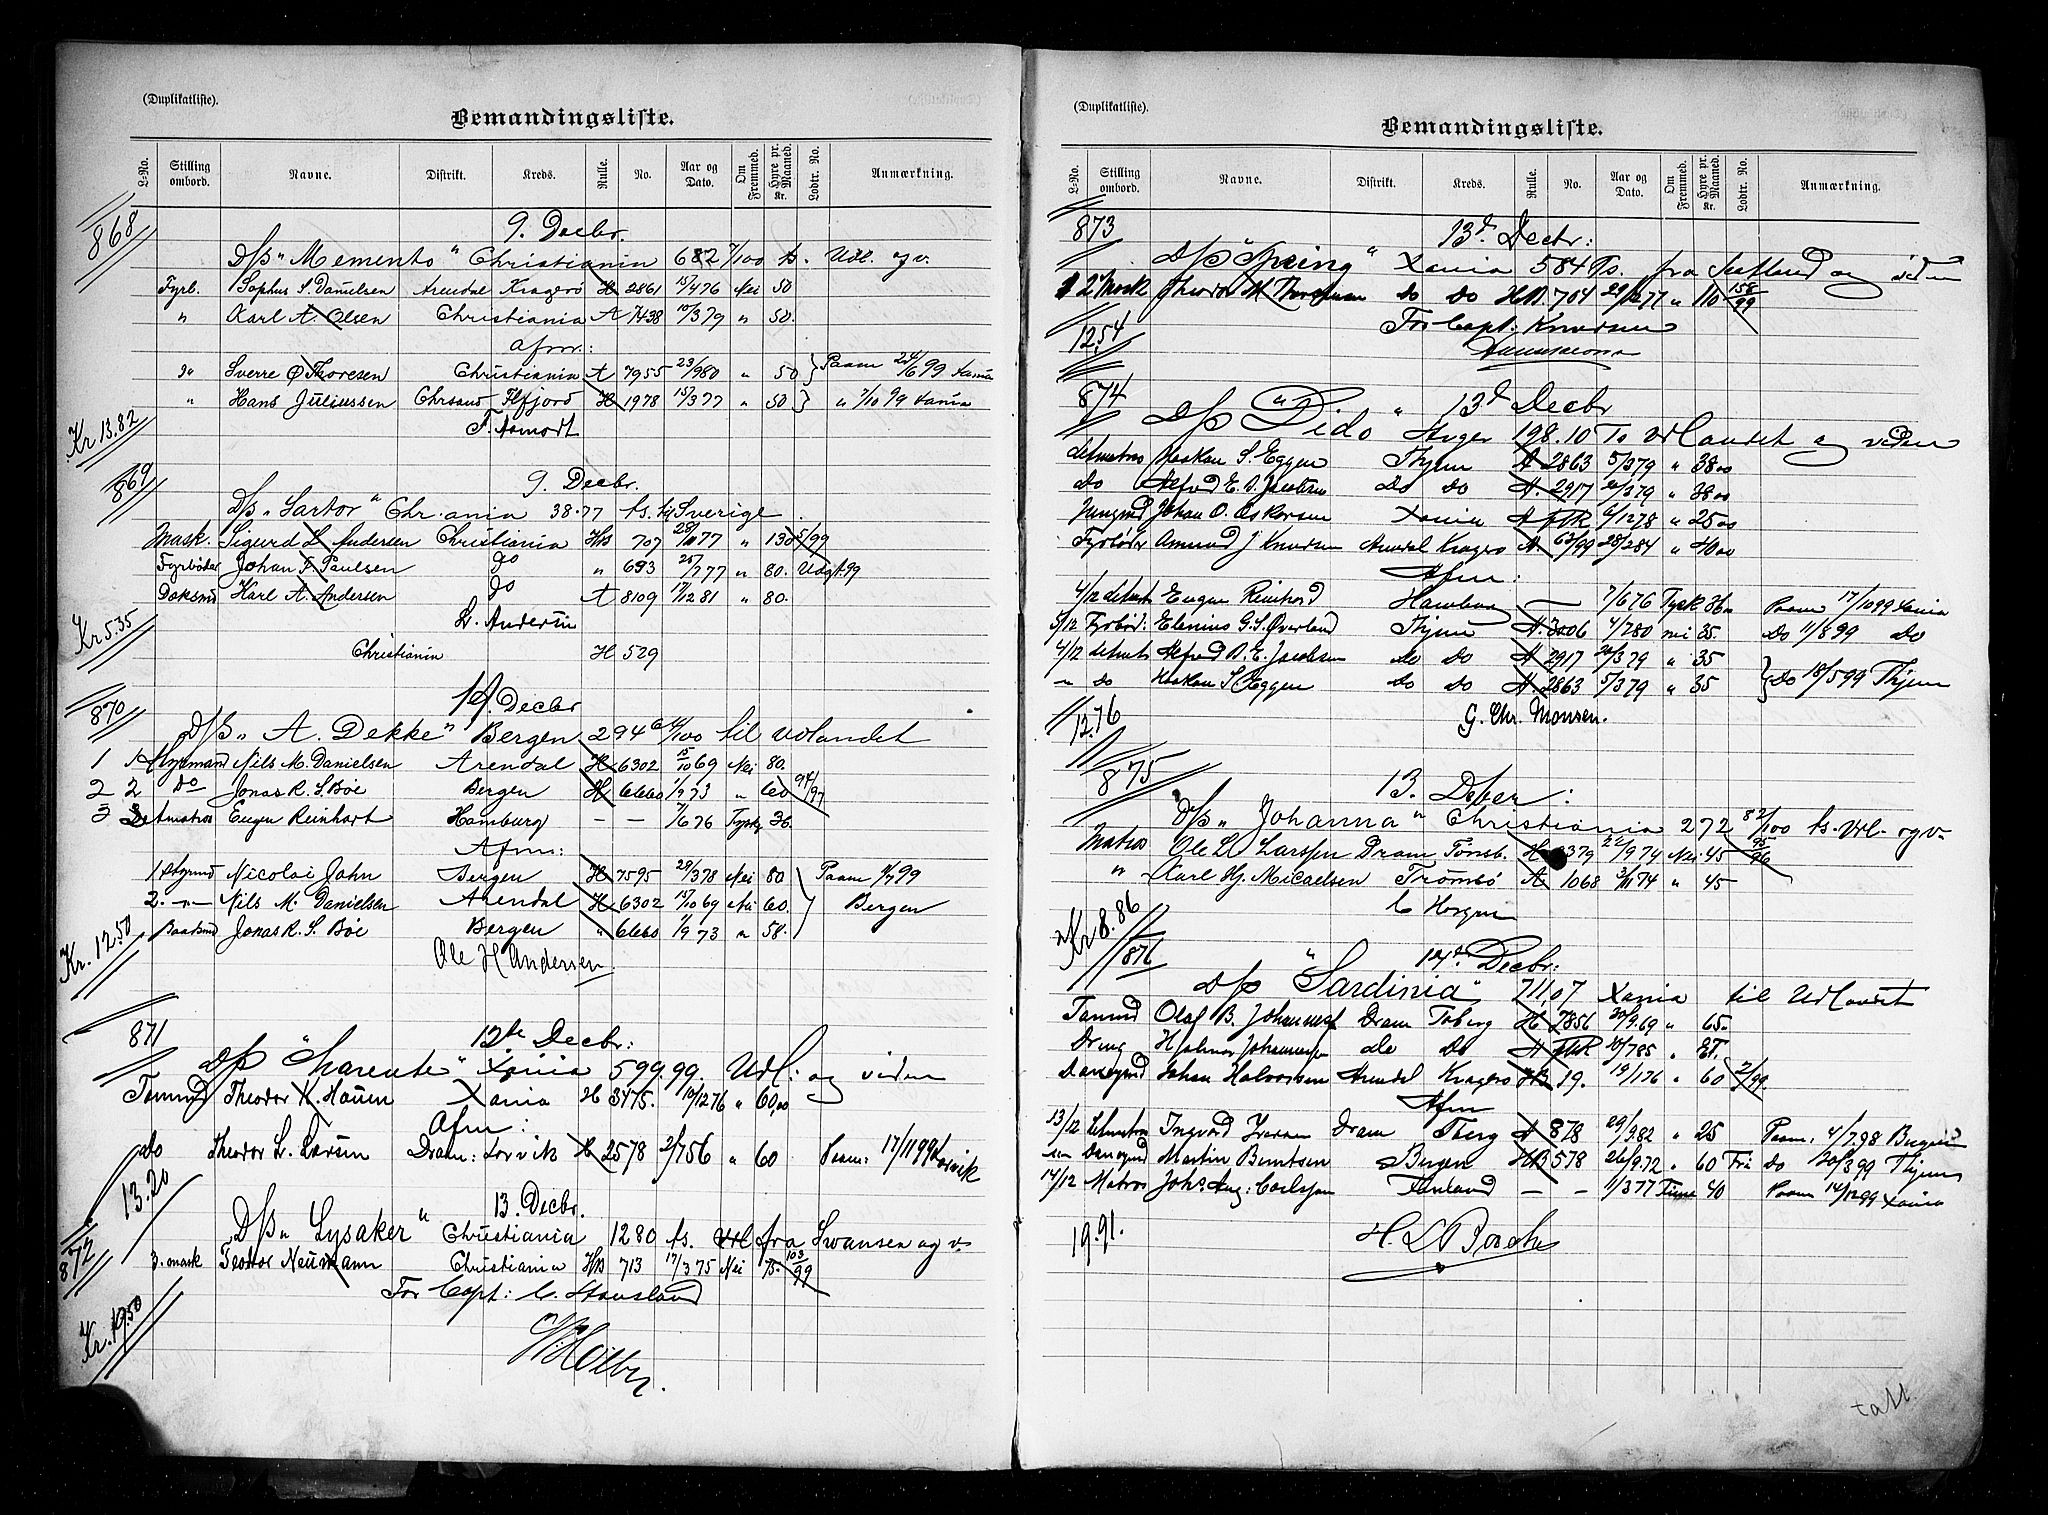 (Duplikatliste).
Bemandingsliste.
L-No. Stilling ombord. Navne. Distrikt. Kreds. Rulle. No. Aar og Dato. Om Fremmed. Hyre pr. Maaned. Kr. Lodtr. No. Anmærkning.
868
9. Decbr.
D/S „Memento“ Christiania 682 7/100 ts. Udl. og v.
Fyrb. Sophus S. Danielsen Arendal Kragerø H 2861 15/4 76 Nei 50
„ Karl A. Olsen Christiania A 7438 10/3 79 „ 50.
Afm.:
Do Sverre Ø Thoresen Christiania A 7955 23/9 80 „ 50
„ Hans Juliussen Chrsand Flfjord H 1978 15/3 77 „ 50 „ 7/10 99 Xania
Kr 13.82
869
9. Decbr.
D/S „Sartor“ Chr.ania 38.77 ts. til Sverige.
Mask. Sigurd L. Andersen Christiania HB 707 77 „ 130 5/99
Fyrbøder Johan F Paulsen Do „ 693 25/7 77 „ 80. Udgt. 99
Dæksmd Karl A. Andersen Do A 8109 17/12 81 „ 80.
L. Andersen
Kr 5.35
Christiania H 529
870
Decbr
D/S „A. Dekke“ Bergen 294 64/100 til Udlandet
1 1 Styrmand Nils M. Danielsen Arendal H 6302 15/10 69 Nei 80.
2 2 Do Jonas R. S. Bøe Bergen H 6660 1/9 73 „ 60 94/97
3 Letmatros Eugen Reinhart Hamburg — — 7/6 76 Tysk 36.
Afm:
1 Styrmd Nicolai John Bergen H 7595 28/3 78 Nei 80 Paam 99
2. „ Nils M. Danielsen Arendal H 6302 15/10 69 Nei 60. Bergen
Baadsmd Jonas R. S. Bøe Bergen „ 6660 1/9 73 „ 58.
Kr. 12.50
Ole H Andersen
871
12te Decbr:
D/S “Charente” Xania 599.99. Udl: og viden
Tømmd Theodor H. Hansen Xania H 3475. 10/12 76 „ 60,00
Afm:
Do Theodor L. Larsen Dram: Larvik H 2578 2/7 56 „ 60 Paam: 17/11 99 Larvik
13.20
872
13 Decbr.
D/S „Lysaker“ Christiania 1280 ts. fra Swansea og v.
3. mask Teodor Neumann Christiania HB 713 17/3 75 Nei 75. 103/99
For Capt: C. Stousland
Kr. 19.50
(Duplikatliste).
Bemandingsliste.
L-No. Stilling ombord. Navne. Distrikt. Kreds. Rulle. No. Aar og Dato. Om Fremmed. Hyre pr. Maaned. Kr. Lodtr. No. Anmærkning.
873
13d Decbr:
D/S “Spring” Xania 584 Ts. fra Scotland og viden
2d Mask Do Do HB. 704 „ 110 158/99
For Capt. Knudsen
12.54
874
13d Decbr
D/S “Dido” Stvger 198.10 Ts Udlandet og viden
Letmatros Haakon S. Eggen Thjem A 2863 5/3 79 „ 38.00
Do Alfred E. B. Jacobsen Do Do A. 2917 20/3 79 „ 38.00
Jungmd Johan O. Oskarsen Xania 6/12 78 „ 25.00
Fyrbøder Amund J. Knudsen Arendal Kragerø A. 63/99 28/2 84 „ 40.00
Afm:
4/12 Letmats Eugen Reinhard Hamburg — 7/6 76 Tysk 36.00 Paam 17/10 99 Xania
5/12 Fyrbød: Elenius G. S. Øverland Thjem A. 3006 4/7 80 nei 35. Do 11/8 99 Do
4/12 Letmats Alfred B. E. Jacobsen Do Do A 2917 20/3 79 „ 35
„ Do Haakon S. Eggen Do Do A. 2863 5/3 79 „ 35 Do 18/5 99 Thjem
12.76
G. Chr. Monsen.
875
13. Deber:
D/S „Johanna“ Christiania 272 82/100 ts. Udl. og v.
Matros Ole L. Larssen Dram Tønsb. H 379 22/9 74 Nei 45 95/96
„ Karl Hj. Micaelsen Tromsø A 1068 3/11 74 „ 45
Kr 8.86
876
14d Decbr:
D/S “Sardinia” 711,07 Xania til Udlandet
Tømmd Olaf B. Johannesen Dram Tøberg H 7856 20/9.69 „ 65.
Dreng Hjalmar Johannessen Do Do 10/7 85 „ ET.
Johan Halvorsen Arendal Kragerø HB 19. 19/1 76 „ 60 2/99
Afm
13/12 Letmatros Ingvald Iversen Dram Tberg A 878 29/9.82 „ 25 Paam. 4/7.98 Bergen
Martin Berntsen Bergen HB 578 26/9.72 „ 60 Fri Do 20/3 99 Thjem
14/12 Matros Johs Aug: Carlssen Finland — — 1/3 77 40 Paam 14/12 99 Xania
19.91.